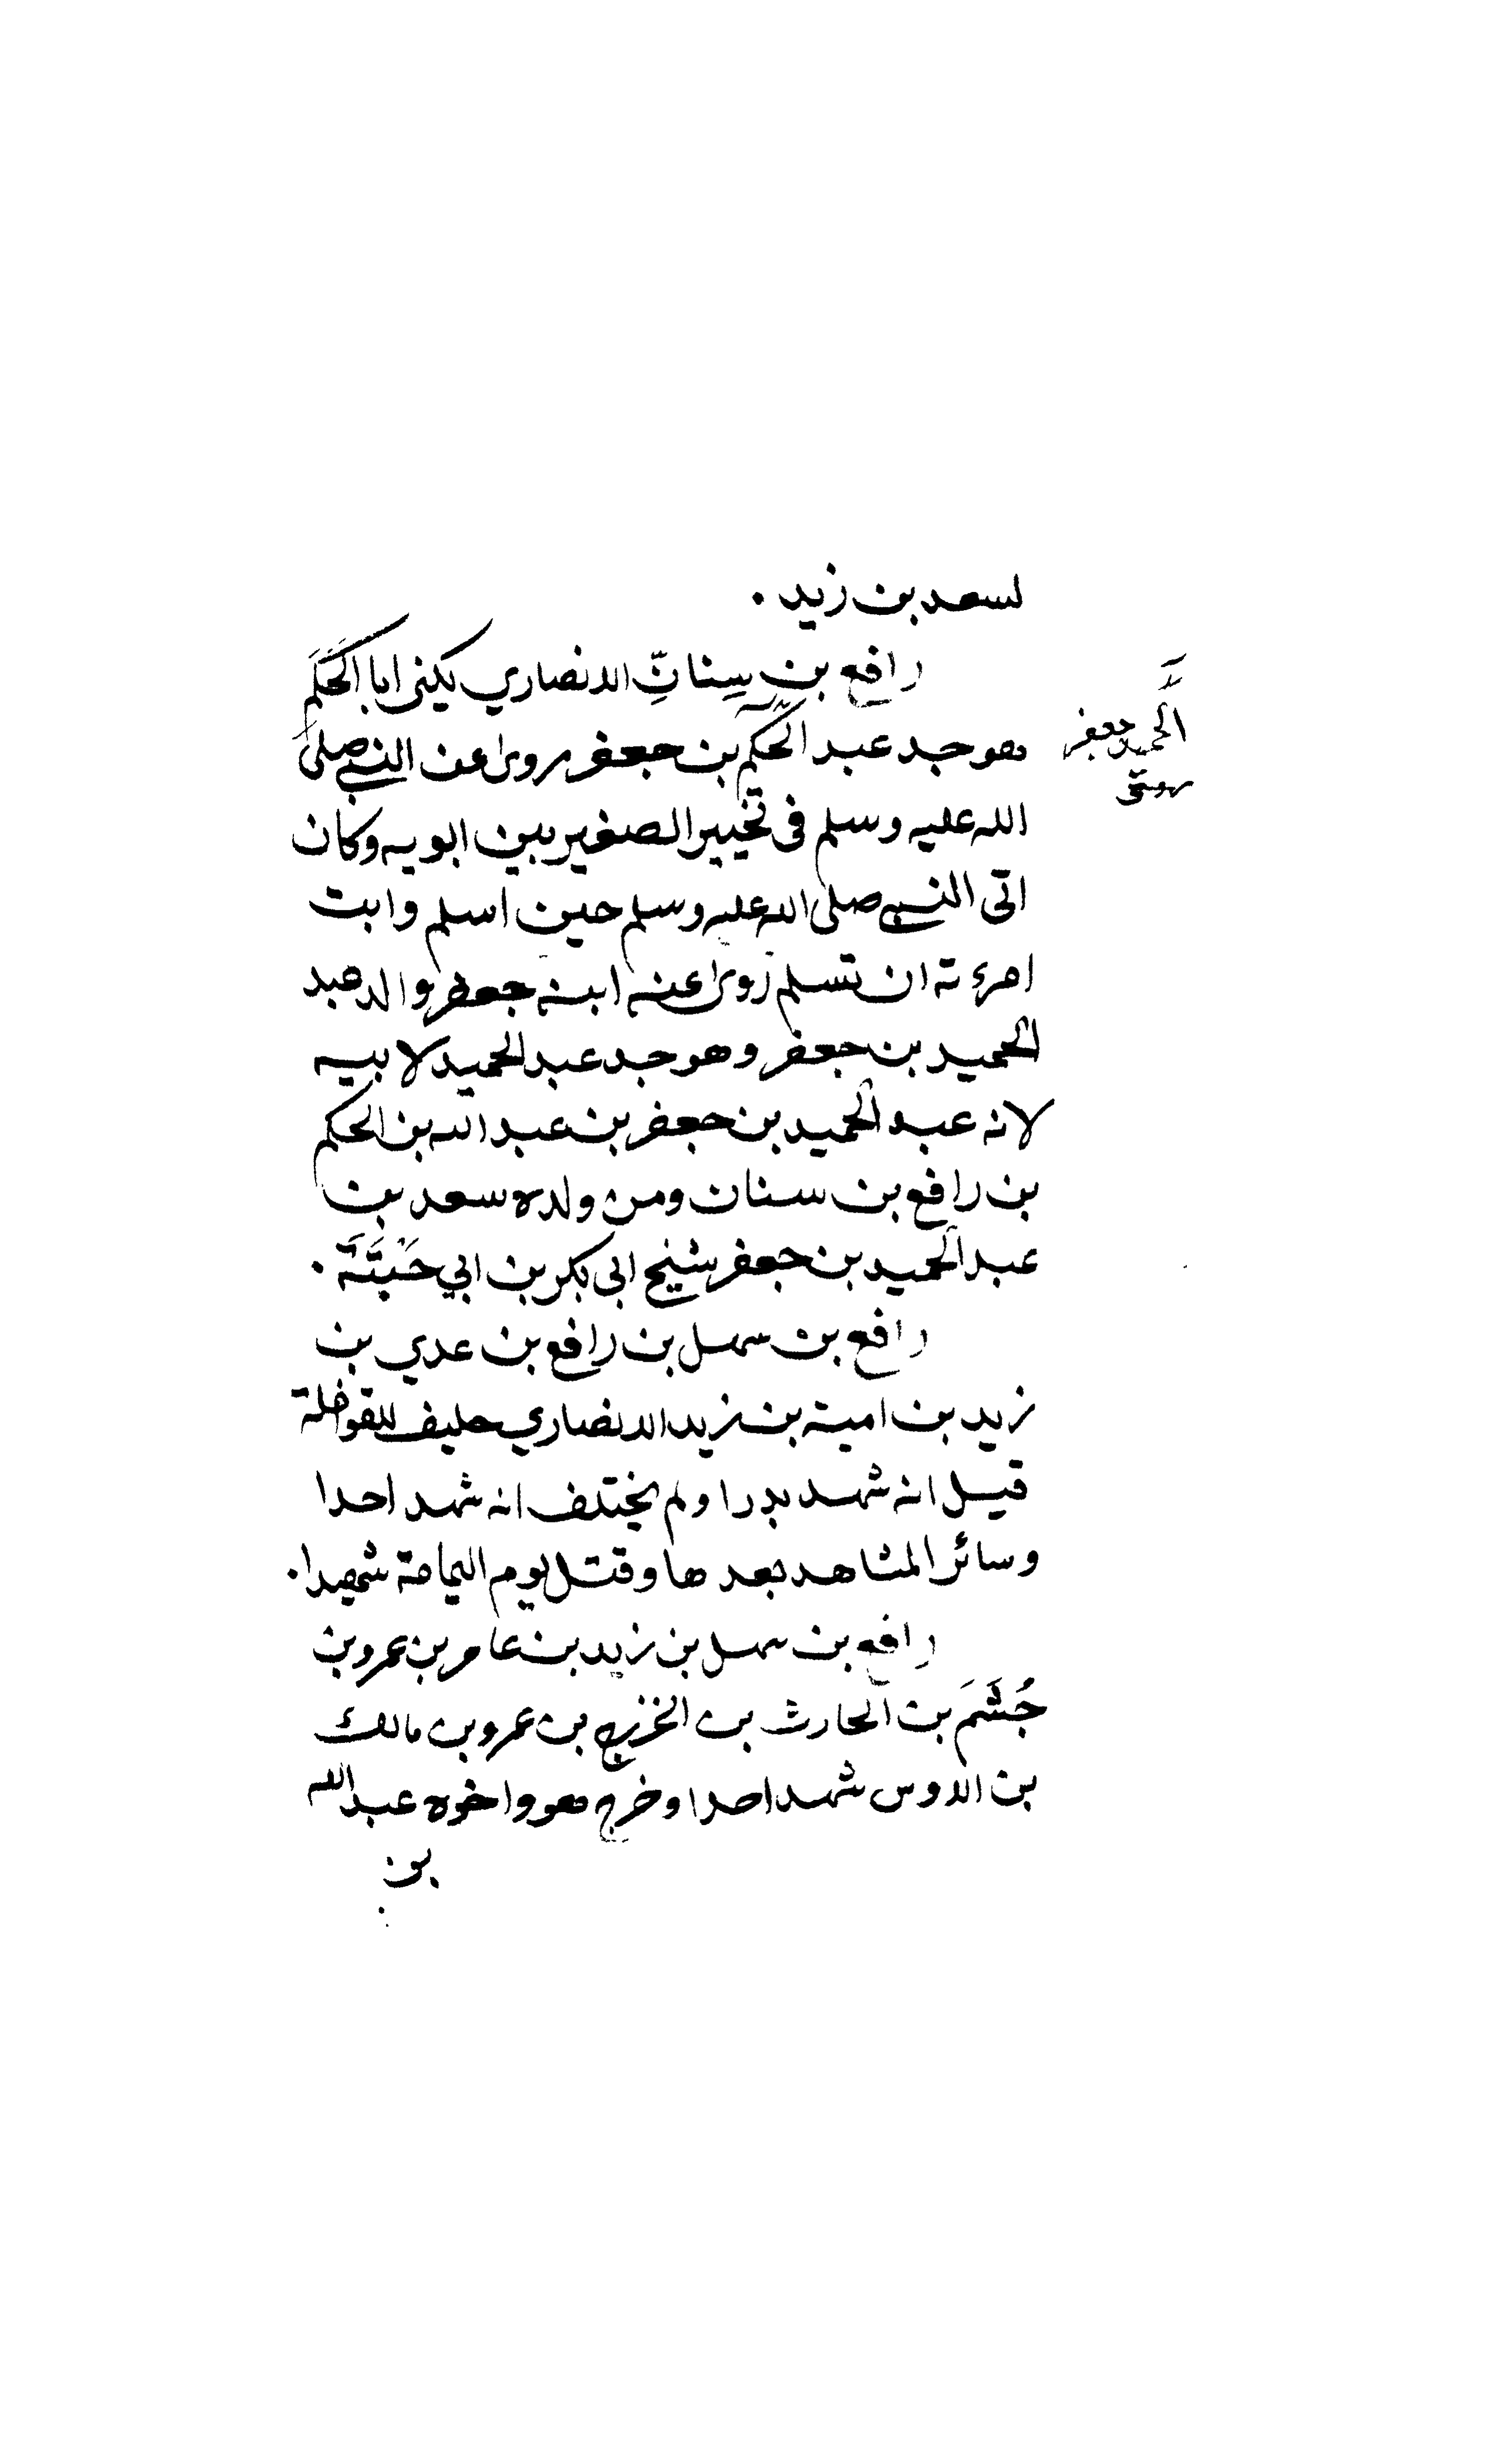 لسعد بن زيد .
رافع بن سِنانِّ الانصاري يكنى ابا الحَكَم
وهو جد عبد الحكم بن جعفر روى عن النبي صلى
الله عليه وسلم فى تخيير الصغير بين ابويه وكان
اتى النبي صلى الله عليه وسلم حين اسلم وابت
امرءته ان تسلم روى عنه ابنه جعفر والد عبد
الحميد بن جعفر وهو جد عبد الحميد لابيه
لانه عبد الحميد بن جعفر بن عبد الله بن الحكم
بن رافع بن سنان ومن ولده سعد بن
عبد الحميد بن جعفر شيخ ابى بكر بن ابي خَيْثَمَة .
رافع بن سهل بن رافع بن عدي بن
زيد بن امية بن زيد الانصاري حليف للقواقلة
قيل انه شهد بدرا ولم يختلف انه شهد احدا
وسائر المشاهد بعدها وقتل يوم اليمامة شهيدا .
رافع بن سهل بن زيد بن عامر بن عمرو بن
جُشَمَ بن الحارث بن الخزرج بن عمرو بن مالك
بن الاوس شهد احدا وخرج هو واخوه عبد الله
بن
الحميد جعفر